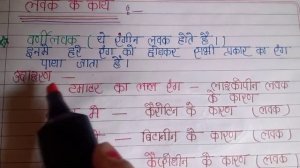 लवक के कार्य :-
वर्णीलवक (ये रंगीन लवक होते हैं।)
इनमे हरे रंग को छोड़कर सभी प्रकार का रंग
पाया जाता है।
उदाहरण —
टमाटर का लाल रंग - लाइकोपीन लवक
के कारण
कैरोटिन के कारण (लवक)
के कारण (लवक)
के कारण (लवक)